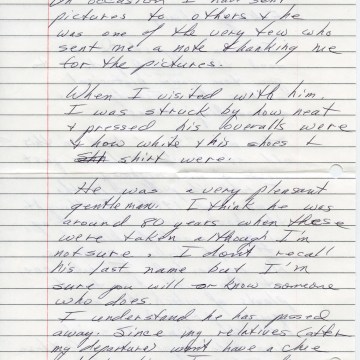 On occasion I had sent
pictures to others & he
was one of the very few who
sent me a note thanking me
for the pictures.
When I visited with him,
I was struck by how neat
& pressed his overalls were
& how white his shoes &
shirt were.
He was a very pleasant
gentleman. I think he was
around 80 years when these
were taken although I'm
not sure. I don't recall
his last name but I'm
sure you will or know someone
who does.
I understand he has passed
away. Since my relatives (after
my departure) won't have a clue